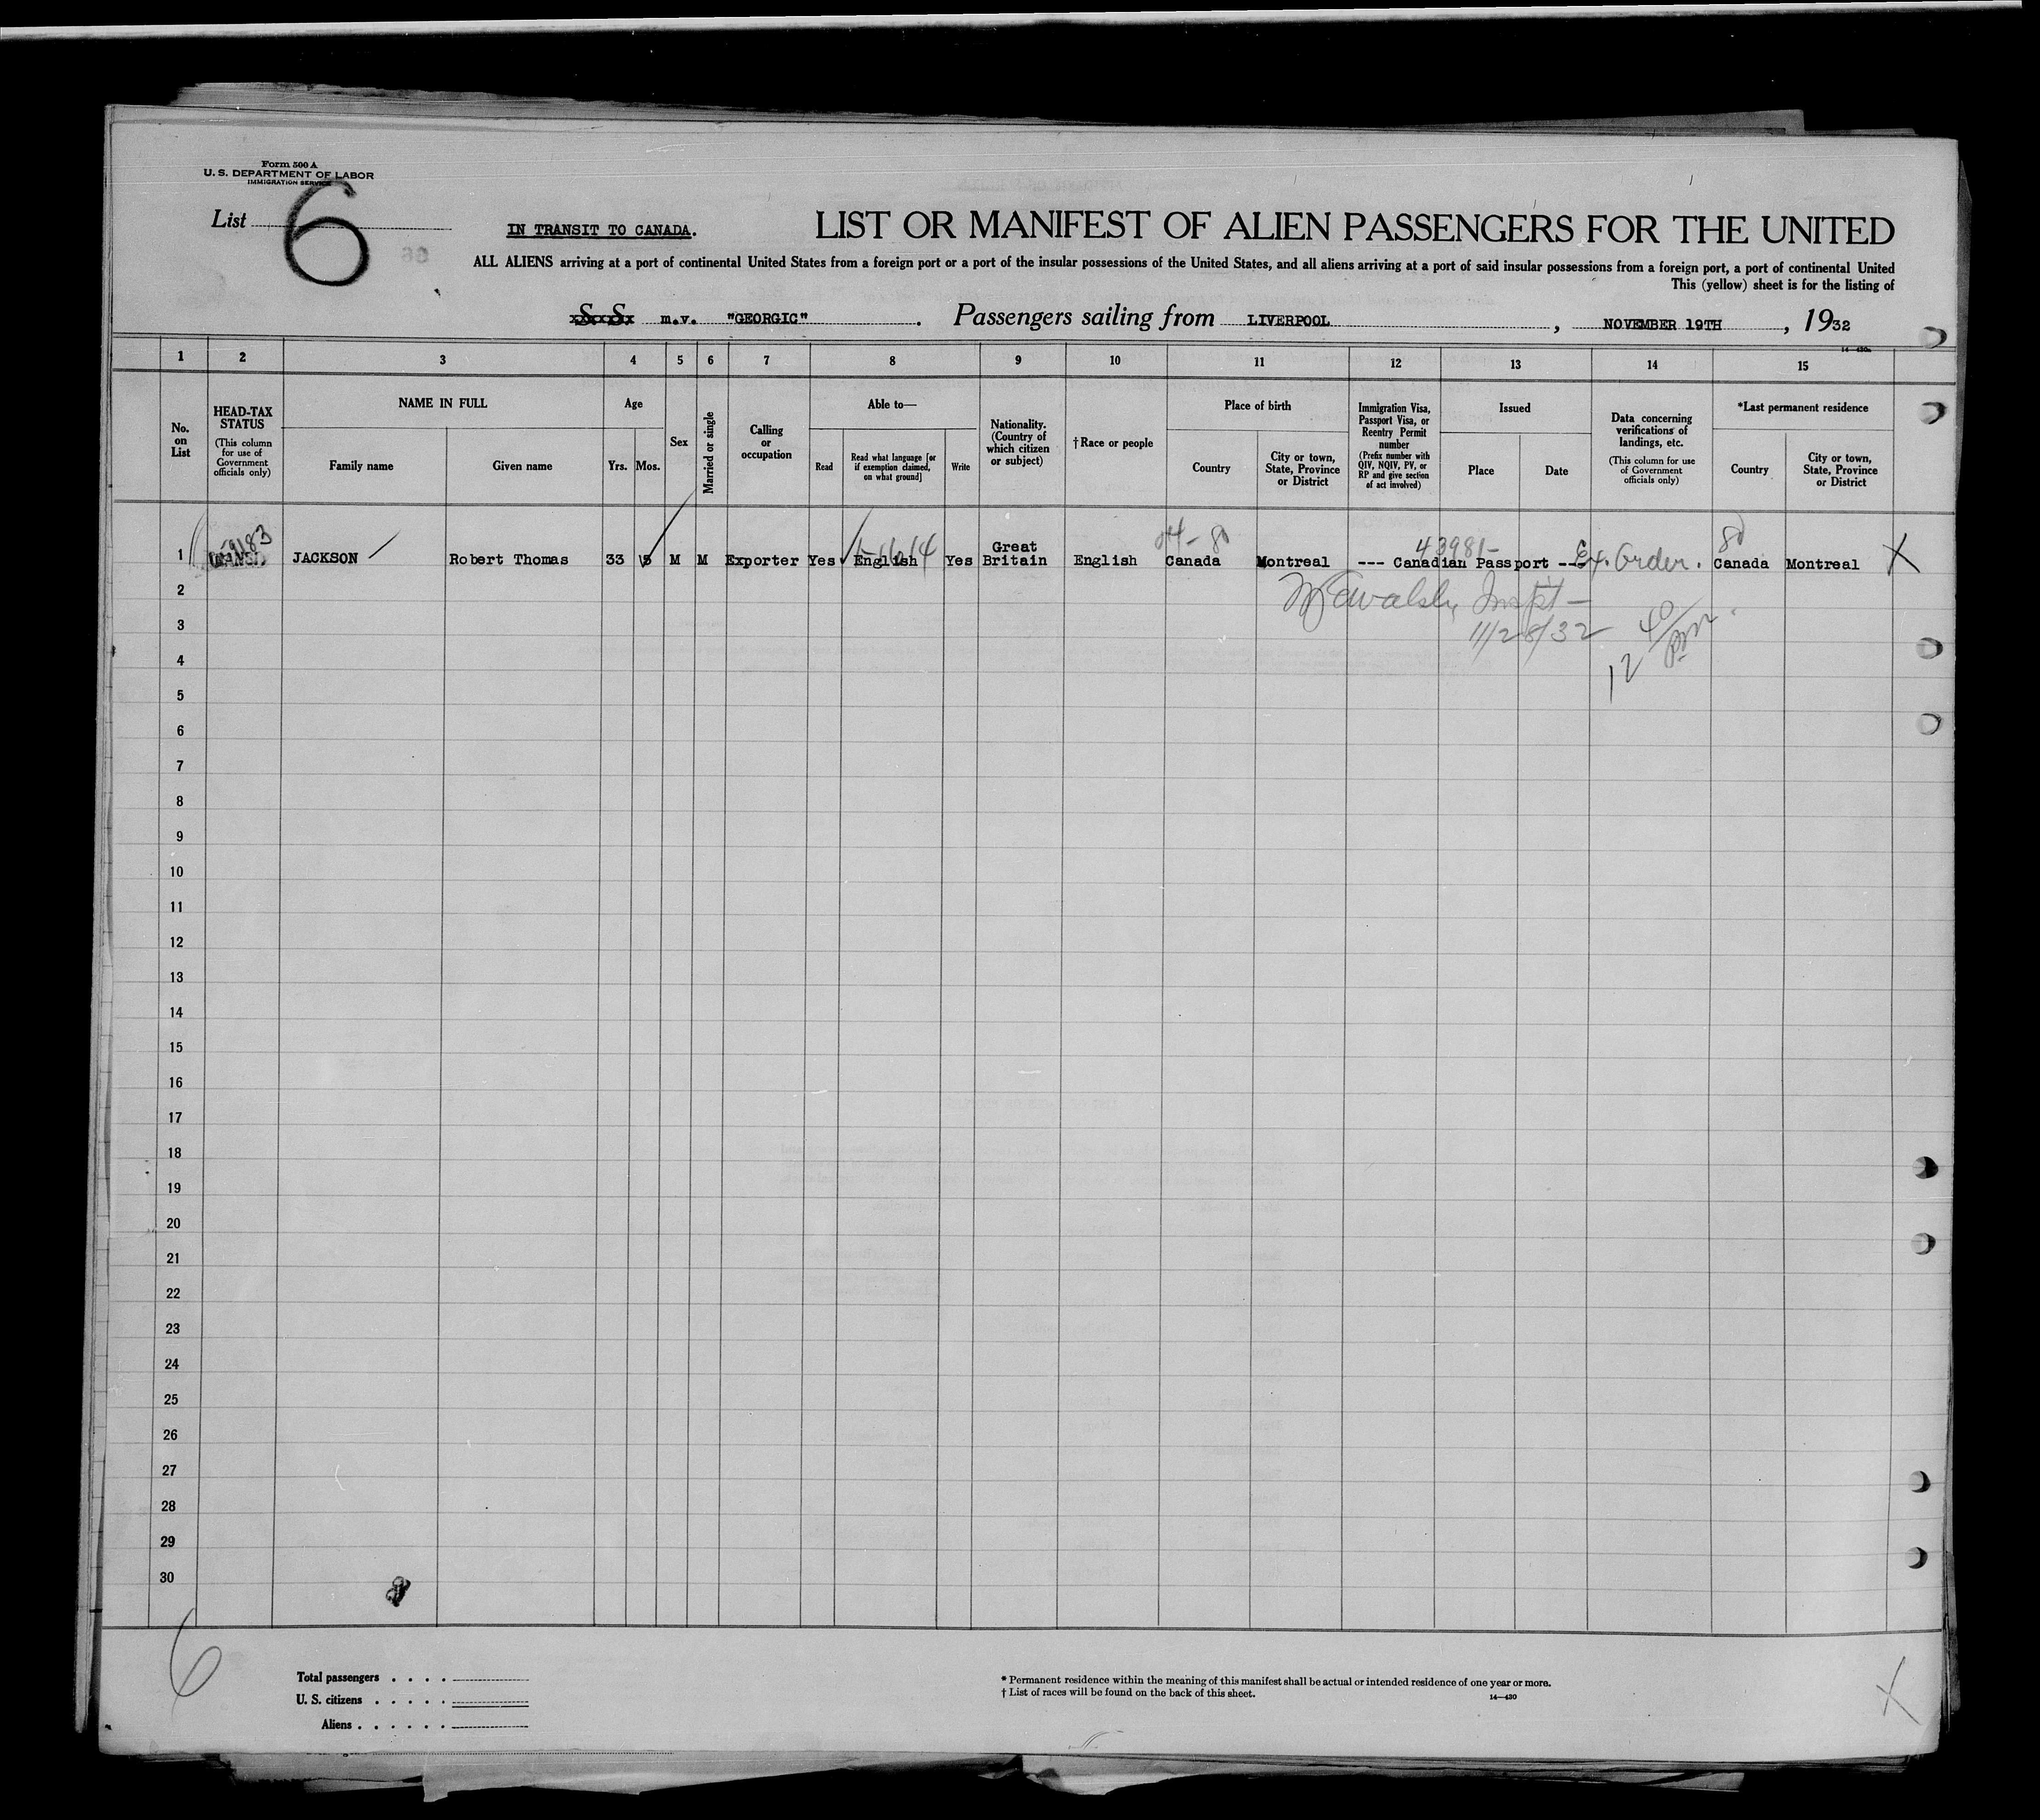 Form 500 A
U. S. DEPARTMENT OF LABOR
IMMIGRATION SERVICE
List 6
IN TRANSIT TO CANADA.
LIST OR MANIFEST OF ALIEN PASSENGERS FOR THE UNITED
ALL ALIENS arriving at a port of continental United States from a foreign port or a port of the insular possessions of the United States, and all aliens arriving at a port of said insular possessions from a foreign port, a port of continental United
This (yellow) sheet is for the listing of
S S m.v. "GEORGIC" . Passengers sailing from LIVERPOOL , NOVEMBER 19TH , 1932
1 2 3 4 5 6 7 8 9 10 11 12 13 14 15
No. on List
HEAD-TAX STATUS
(This column for use of Government officials only)
NAME IN FULL
Family name
Given name
Age
Yrs.
Mos.
Sex
Married or single
Calling or occupation
Able to—
Read
Read what language [or if exemption claimed, on what ground]
Write
Nationality. (Country of which citizen or subject)
†Race or people
Place of birth
Country
City or town, State, Province or District
Immigration Visa, Passport Visa, or Reentry Permit number
(Prefix number with QIV, NQIV, PV, or RP and give section of act involved)
Issued
Place
Date
Data concerning verifications of landings, etc.
(This column for use of Government officials only)
*Last permanent residence
Country
City or town, State, Province or District
43981-
1 JACKSON Robert Thomas 33 M M Exporter Yes English Yes Great Britain English Canada Montreal --- Canadian Passport -- Ex. Order. Canada Montreal X
2
3 11/28/32 12 40/PM
4
5
6
7
8
9
10
11
12
13
14
15
16
17
18
19
20
21
22
23
24
25
26
27
28
29
30
6
Total passengers
U. S. citizens
Aliens
* Permanent residence within the meaning of this manifest shall be actual or intended residence of one year or more.
† List of races will be found on the back of this sheet.
14—430
X